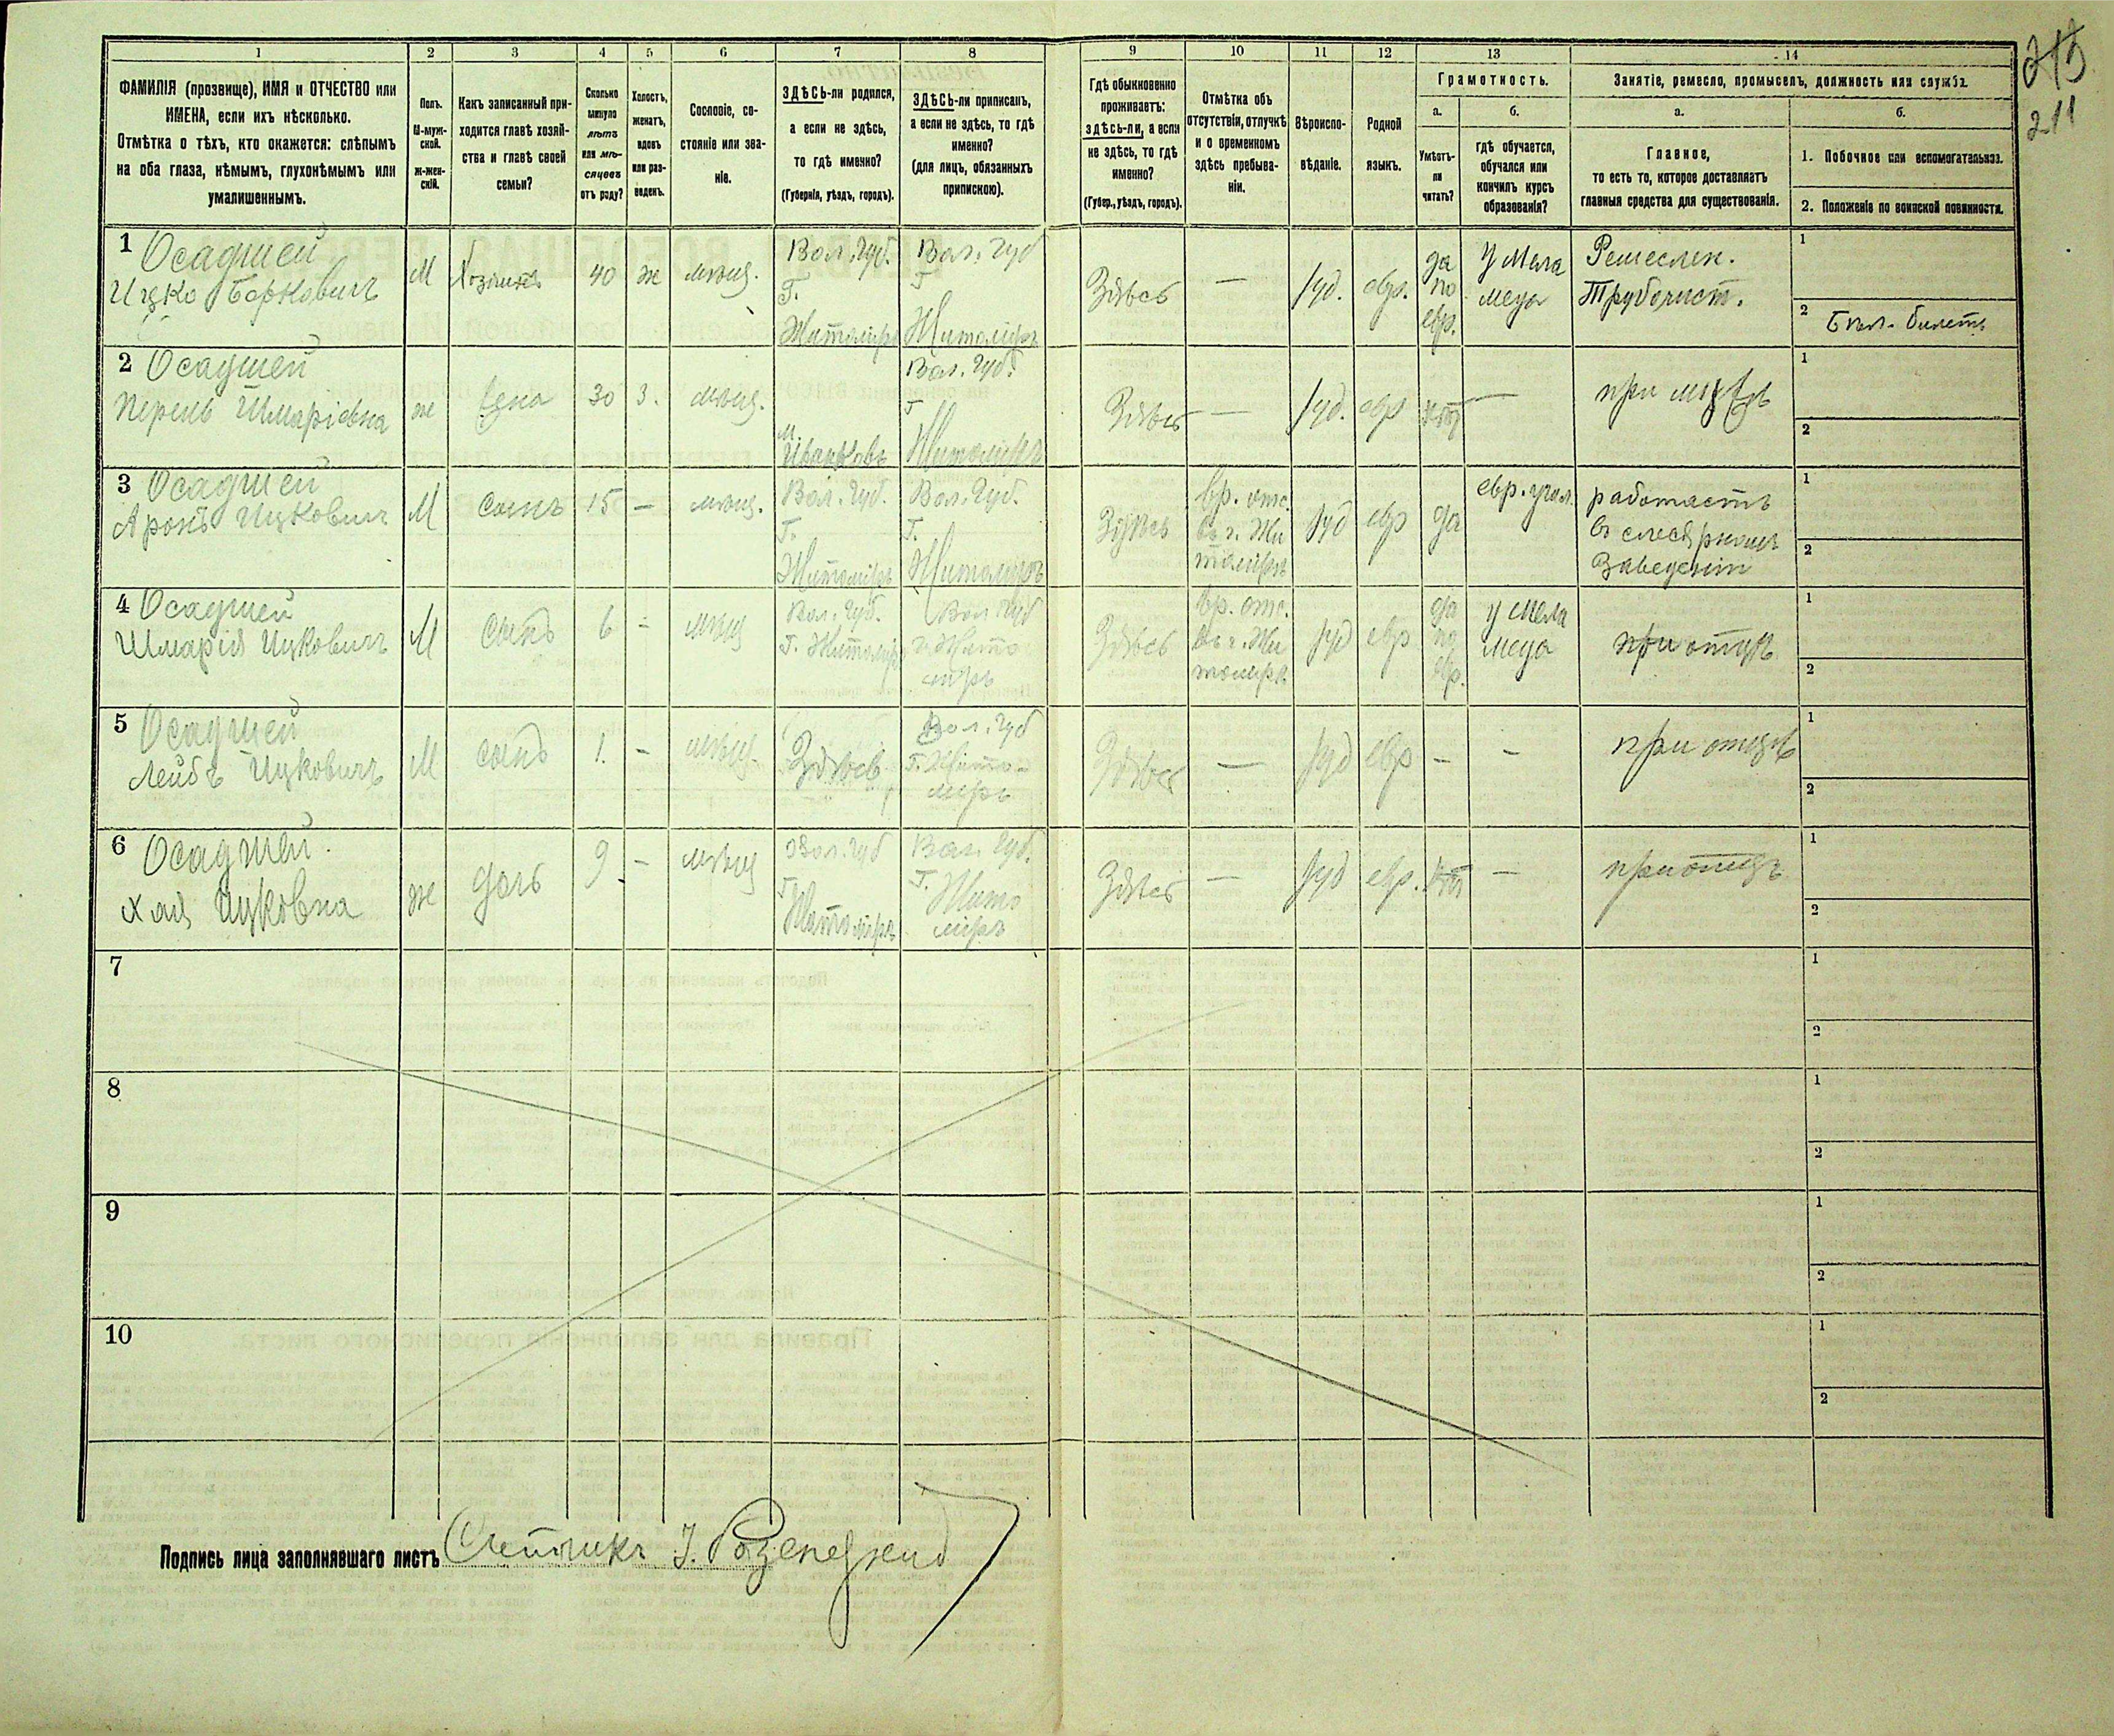 215
211
1
2
3
4
5
6
7
8
9
10
11
12
13
14
ФАМИЛІЯ (прозвище), ИМЯ и ОТЧЕСТВО или
ИМЕНА, если ихъ нѣсколько.
Отмѣтка о тѣхъ, кто окажется: слѣпымъ
на оба глаза, нѣмымъ, глухонѣмымъ или
умалишеннымъ.
Полъ.
М-муж-
ской.
ж-жен-
скій.
Какъ записанный при-
ходится главѣ хозяй-
ства и главѣ своей
семьи?
Сколько
минуло
лѣтъ
или мѣ-
сяцевъ
отъ роду?
Холостъ,
женатъ,
вдовъ
или раз-
веденъ.
Сословіе, со-
стояніе или зва-
ніе.
ЗДѢСЬ-ли родился,
а если не здѣсь,
то гдѣ именно?
(Губернія, уѣздъ, городъ).
ЗДѢСЬ-ли приписанъ,
а если не здѣсь, то гдѣ
именно?
(для лицъ, обязанныхъ
припискою).
Гдѣ обыкновенно
проживаетъ:
здѣсь-ли, а если
не здѣсь, то гдѣ
именно?
(Губер., уѣздъ, городъ).
Отмѣтка объ
отсутствіи, отлучкѣ
и о временномъ
здѣсь пребыва-
ніи.
Вѣроиспо-
вѣданіе.
Родной
языкъ.
Грамотность.
а.
Умѣетъ-
ли
читать?
б.
гдѣ обучается,
обучался или
кончилъ курсъ
образованія?
Занятіе, ремесло, промыселъ, должность или служба.
а.
Главное,
то есть то, которое доставляетъ
главныя средства для существованія.
б.
1. Побочное или вспомогательное.
2. Положеніе по воинской повинности.
1 Осадшей
Ицко Берковичъ
М
Хозяинъ
40
ж
мѣщ.
Вол. Губ.
Г.
Житоміръ
Вол. Губ
Г
Житоміръ
Здѣсь
—
Іуд.
евр.
да
по
евр.
У Мела
меда
Ремеслен.
Трубочист.
1
2 Бѣл. билетъ
2 Осадшей
Перель Шмаріевна
ж
жена
30
З.
мѣщ.
м.
Иванковъ
Вол. Губ.
Г
Житоміръ
Здѣсь
—
Іуд.
евр
нѣтъ
—
при мужѣ
1
2
3 Осадшей
Аронъ Ицковичъ
М
Сынъ
15
—
мѣщ.
Вол. Губ.
Г.
Житоміръ
Вол. Губ.
Г.
Житоміръ
Здѣсь
вр. отс.
въ г. Жи
томірѣ
Іуд
евр
да
евр. учил.
работаетъ
въ слесарномъ
заведеніи
1
2
4 Осадшей
Шмарія Ицковичъ
М
Сынъ
6
-
мѣщ
Вол. Губ.
Г. Житоміръ
Вол. Губ
г. Жито
міръ
Здѣсь
вр. отс.
въ г. Жи
томірѣ
Іуд
евр
да
по
евр.
у Мела
меда
при отцѣ
1
2
5 Осадшей
Лейбъ Ицковичъ
М
сынъ
1.
-
мѣщ.
Здѣсь
Вол. Губ
Г. Жито-
міръ
Здѣсь
—
Іуд
евр
-
-
при отцѣ
1
2
6 Осадшей
Хая Ицковна
ж
дочь
9
-
мѣщ
Вол. Губ
Г
Житоміръ
Вол. Губ.
Г.
Жито
міръ
Здѣсь
—
Іуд
евр.
нѣтъ
—
при отцѣ
1
2
7
1
2
8
1
2
9
1
2
10
1
2
Подпись лица заполнявшаго листъ Счетчикъ І.